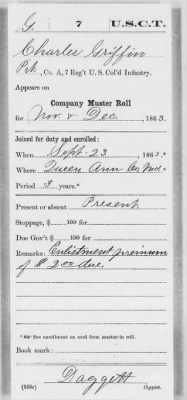 G. 7 U.S.C.T.
Charles Griffin
Pvt., Co. A, 7 Reg't U. S. Col'd Infantry.
Appears on
Company Muster Roll
for Nov & Dec, 1863.
Joined for duty and enrolled:
When Sept. 23, 1863.*
Where Queen Ann Co Md.
Period 3 years.*
Present or absent Present.
Stoppage, $ 100 for
Due Gov't $ 100 for
Remarks: Enlistment premium
of $ 2.00 due.
* See enrollment on card from muster-in roll.
Book mark:
Daggett
(358c) Copyist.